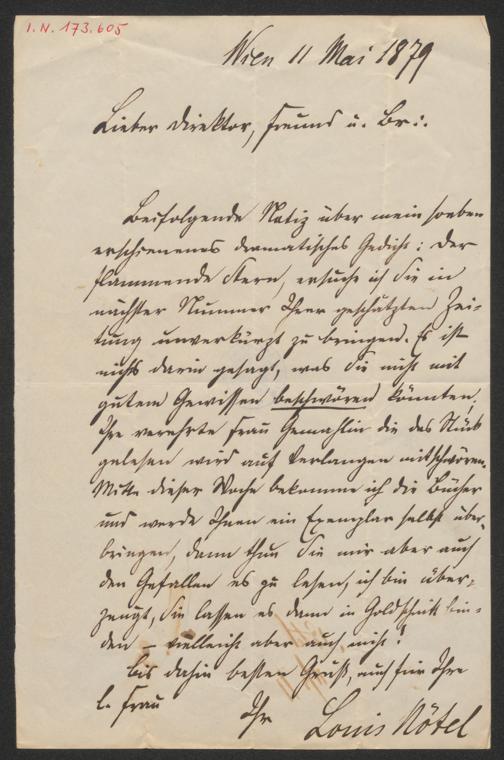 I.N. 173.605
Wien 11 Mai 1879
Lieber Direktor, Freund u. Br:.
Beifolgende Notiz über mein soeben
erschienenes dramatisches Gedicht: Der
flammende Stern, ersuche ich Sie in
nächster Nummer Ihrer geschätzten Zei-
tung unverkürzt zu bringen. Es ist
nichts darin gesagt, was Sie nicht mit
gutem Gewissen beschwören könnten,
Ihre verehrte Frau Gemahlin die das Stück
gelesen wird auf Verlangen mitschwören.
Mitte dieser Woche bekomme ich die Bücher
und werde Ihnen ein Exemplar selbst über-
bringen, dann thun Sie mir aber auch
den Gefallen es zu lesen, ich bin über-
zeugt, Sie lassen es dann in Goldschnitt bin-
den – vielleicht aber auch nicht!
Bis dahin besten Gruß, auch für Ihre
l. Frau
Ihr Louis Nötel